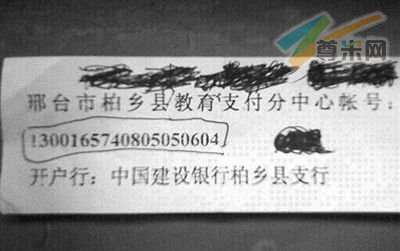 尊米网
邢台市柏乡县教育支付分中心帐号：
13001657408050506​04
开户行：中国建设银行柏乡县支行